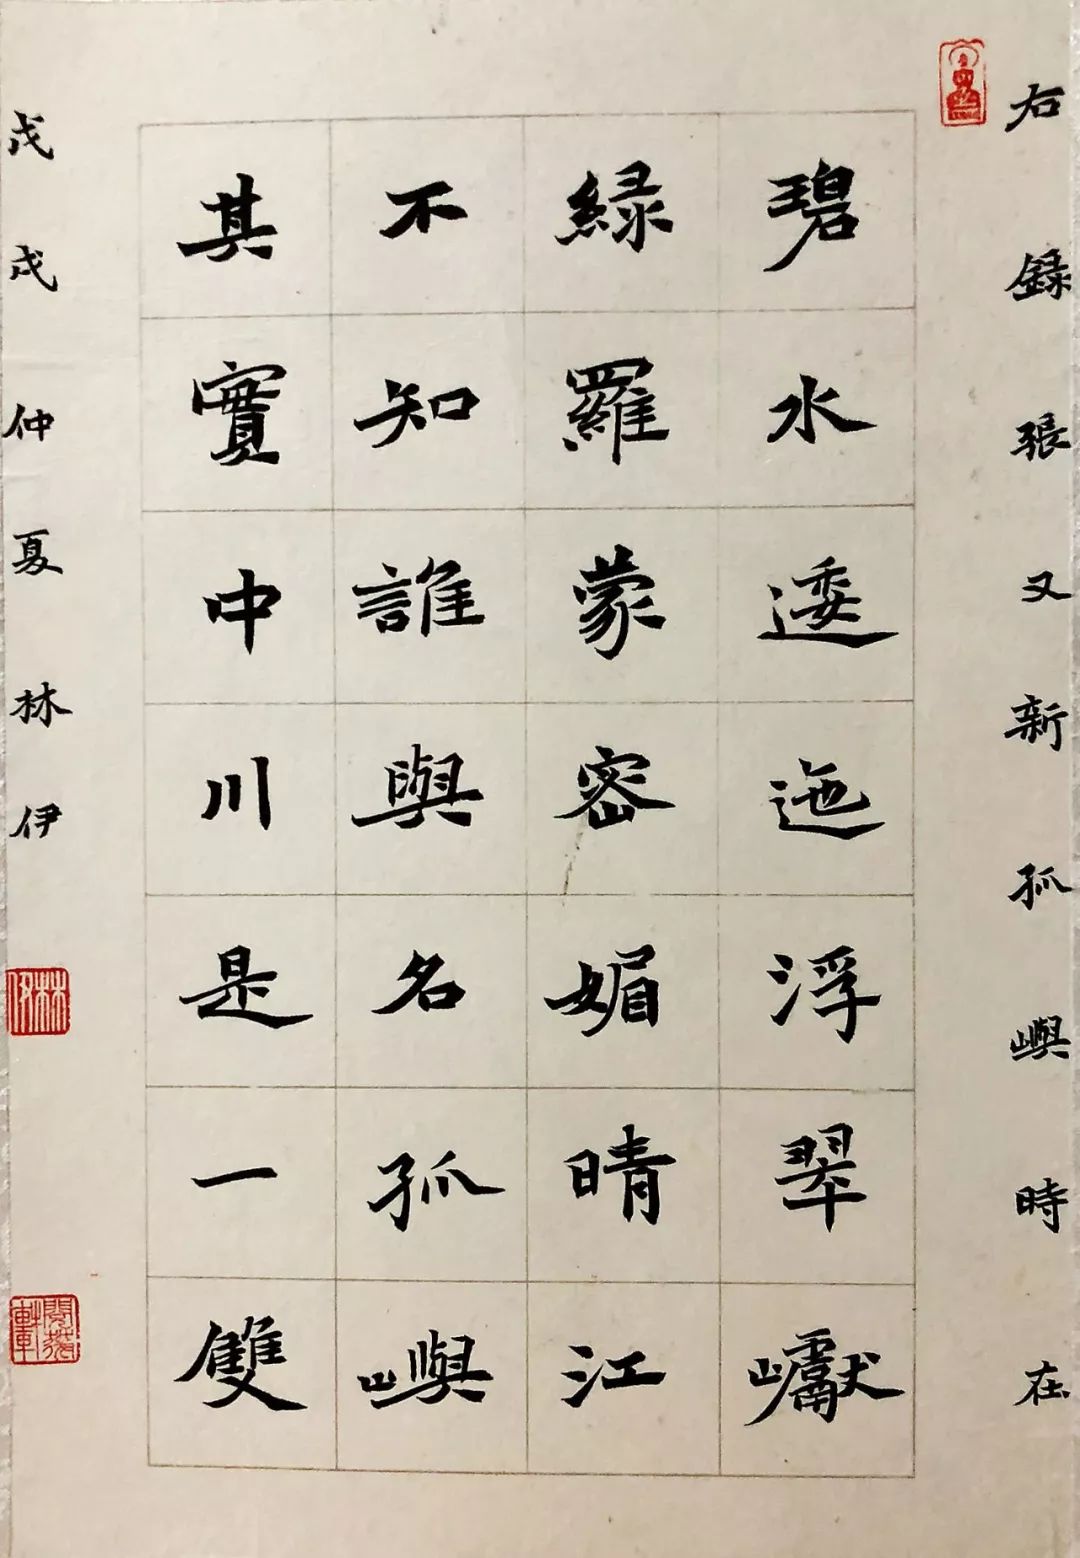 右録張又新孤嶼時在
碧水逶迤浮翠巘
緑羅蒙密媚晴江
不知誰與名孤嶼
其實中川是一雙
戊戌仲夏林伊
林伊